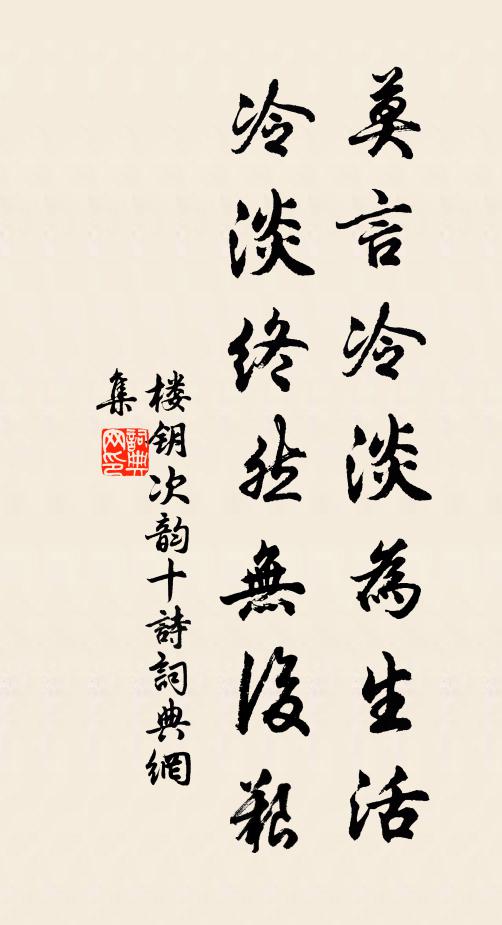 莫言冷淡為生活
冷淡终然無後艱
楼钥次韵十詩詞典網
集
詞典网印